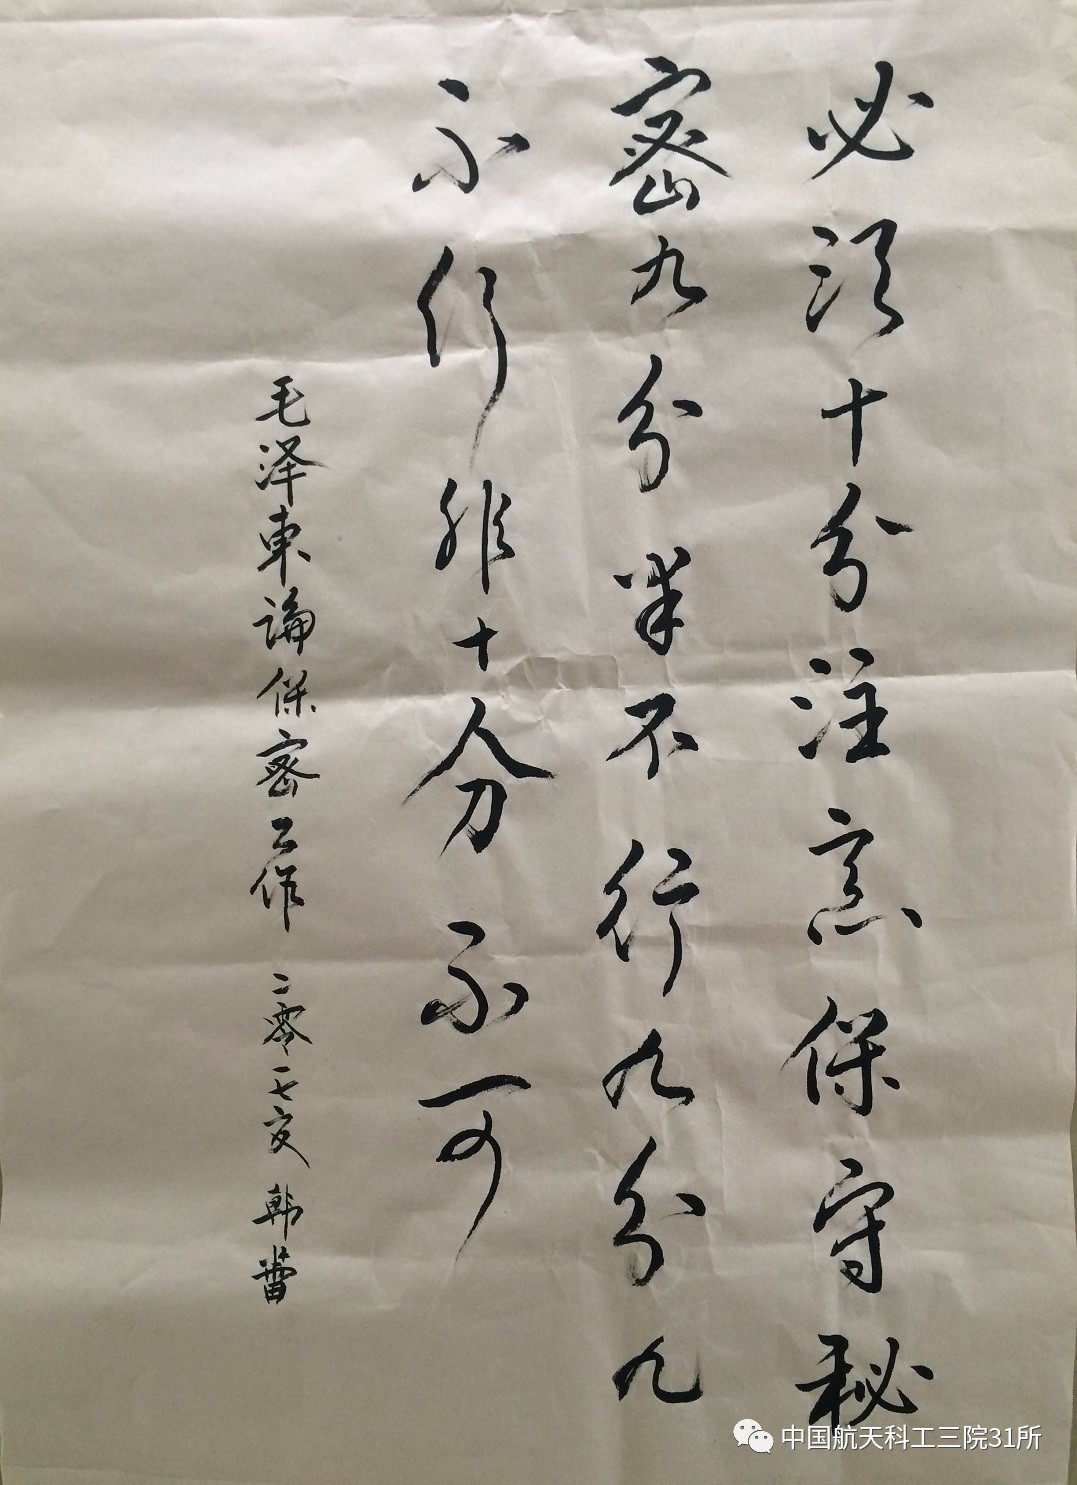 必须十分注意保守秘
密九分半不行九分九
不行非十分不可
毛泽东论保密工作 二零一七夏 韩蕾
中国航天科工三院31所